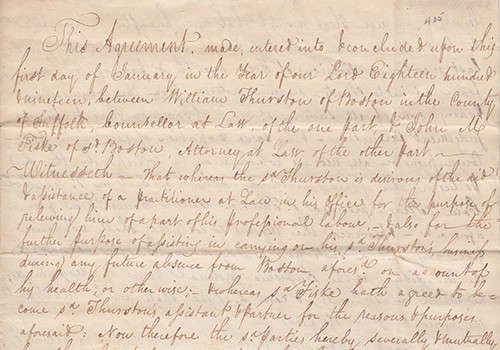 405
This Agreement, made, intered into & concluded upon this
first day of January, in the Year of our Lord Eighteen hundred
& nineteen, between William Thurston of Boston in the County
of Suffolk, Counsellor at Law, of the one part & John M
Fiske of sd. Boston, Attorney at Law of the other Part —
Witnesseth — That whereas the sd. Thurston is desirous of the aid
& assistance of a practitioner at Law in his Office for the purpose of
relieving him of a part of his Professional labour, & also for the
further purpose of assisting in carrying on his sd. Thurston's business
during any future absence from Boston aforesd. on account of
his health, or otherwise; & whereas sd. Fiske hath agreed to be-
come sd. Thurston's assistant & partner for the reasons & purposes
aforesaid: Now therefore the sd. Parties hereby, severally, & mutually